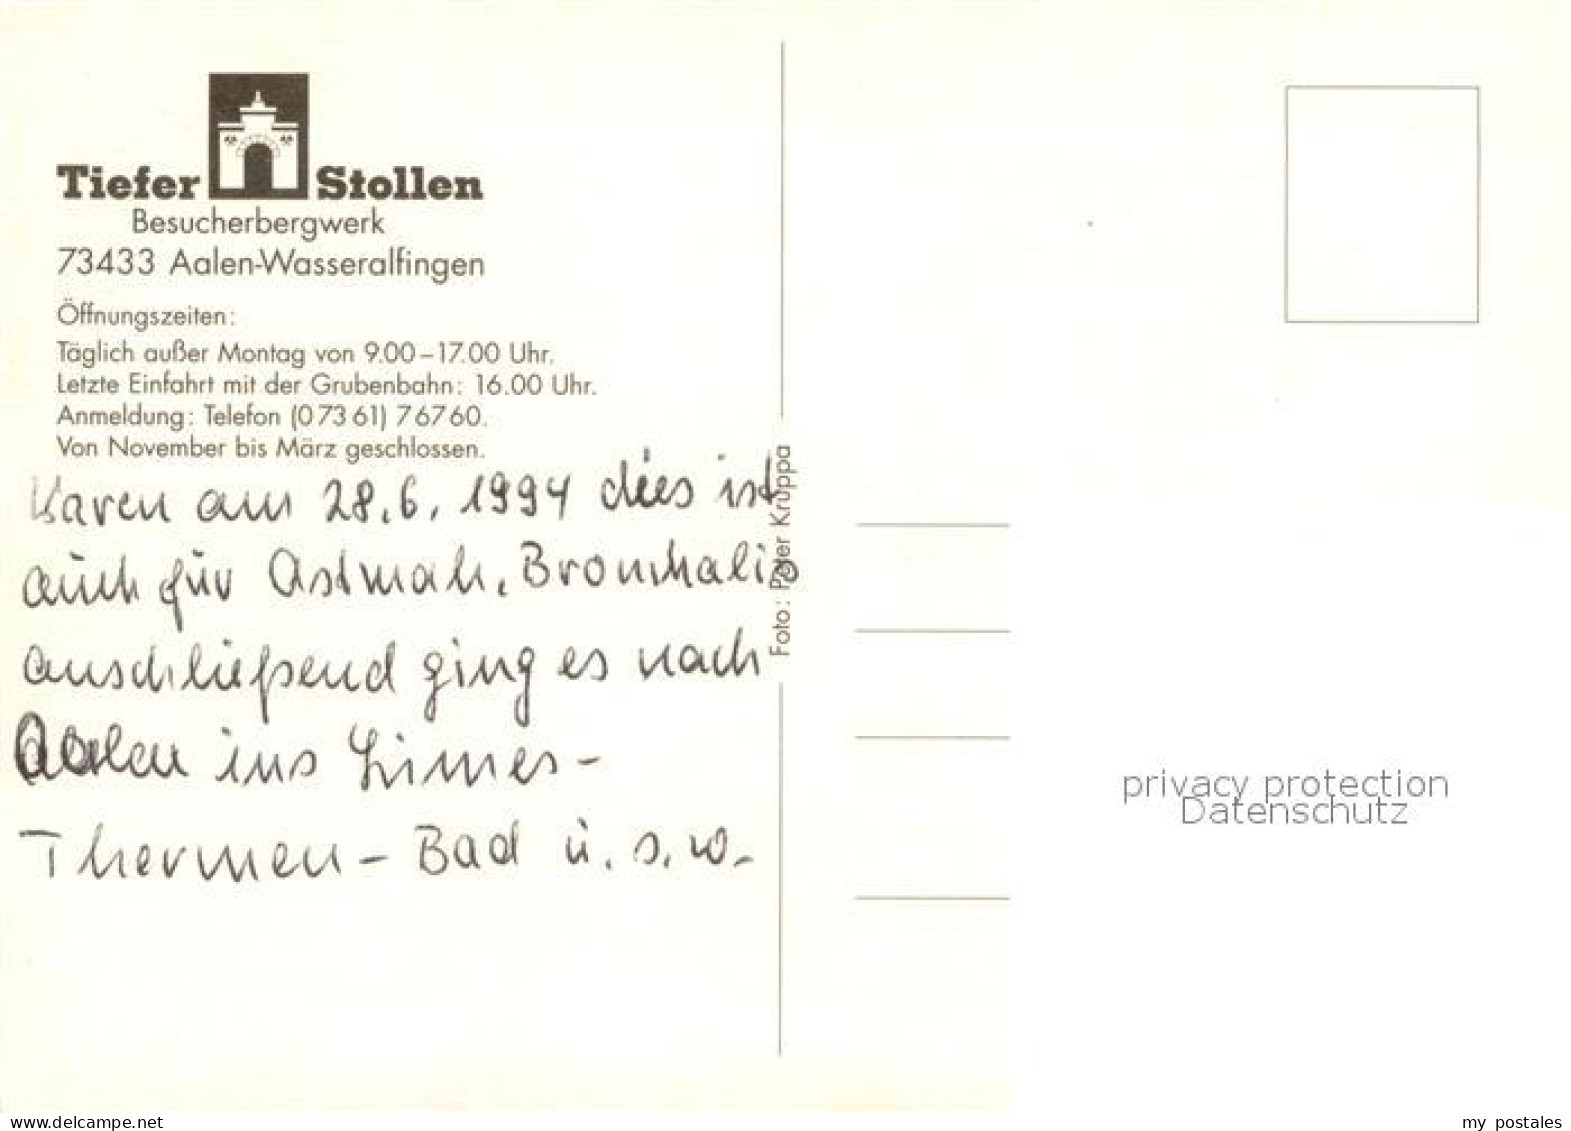 Tiefer Stollen
Besucherbergwerk
73433 Aalen-Wasseralfingen
Öffnungszeiten:
Täglich außer Montag von 9.00–17.00 Uhr.
Letzte Einfahrt mit der Grubenbahn: 16.00 Uhr.
Anmeldung: Telefon (0 73 61) 7 67 60.
Von November bis März geschlossen.
Waren am 28.6.1994 dies ist
auch für Astmah, Bronchalis
anschließend ging es nach
Aalen ins Limes-
Thermen-Bad u.s.w.
Foto: Peter Kruppa
privacy protection
Datenschutz
www.delcampe.net
my_postales